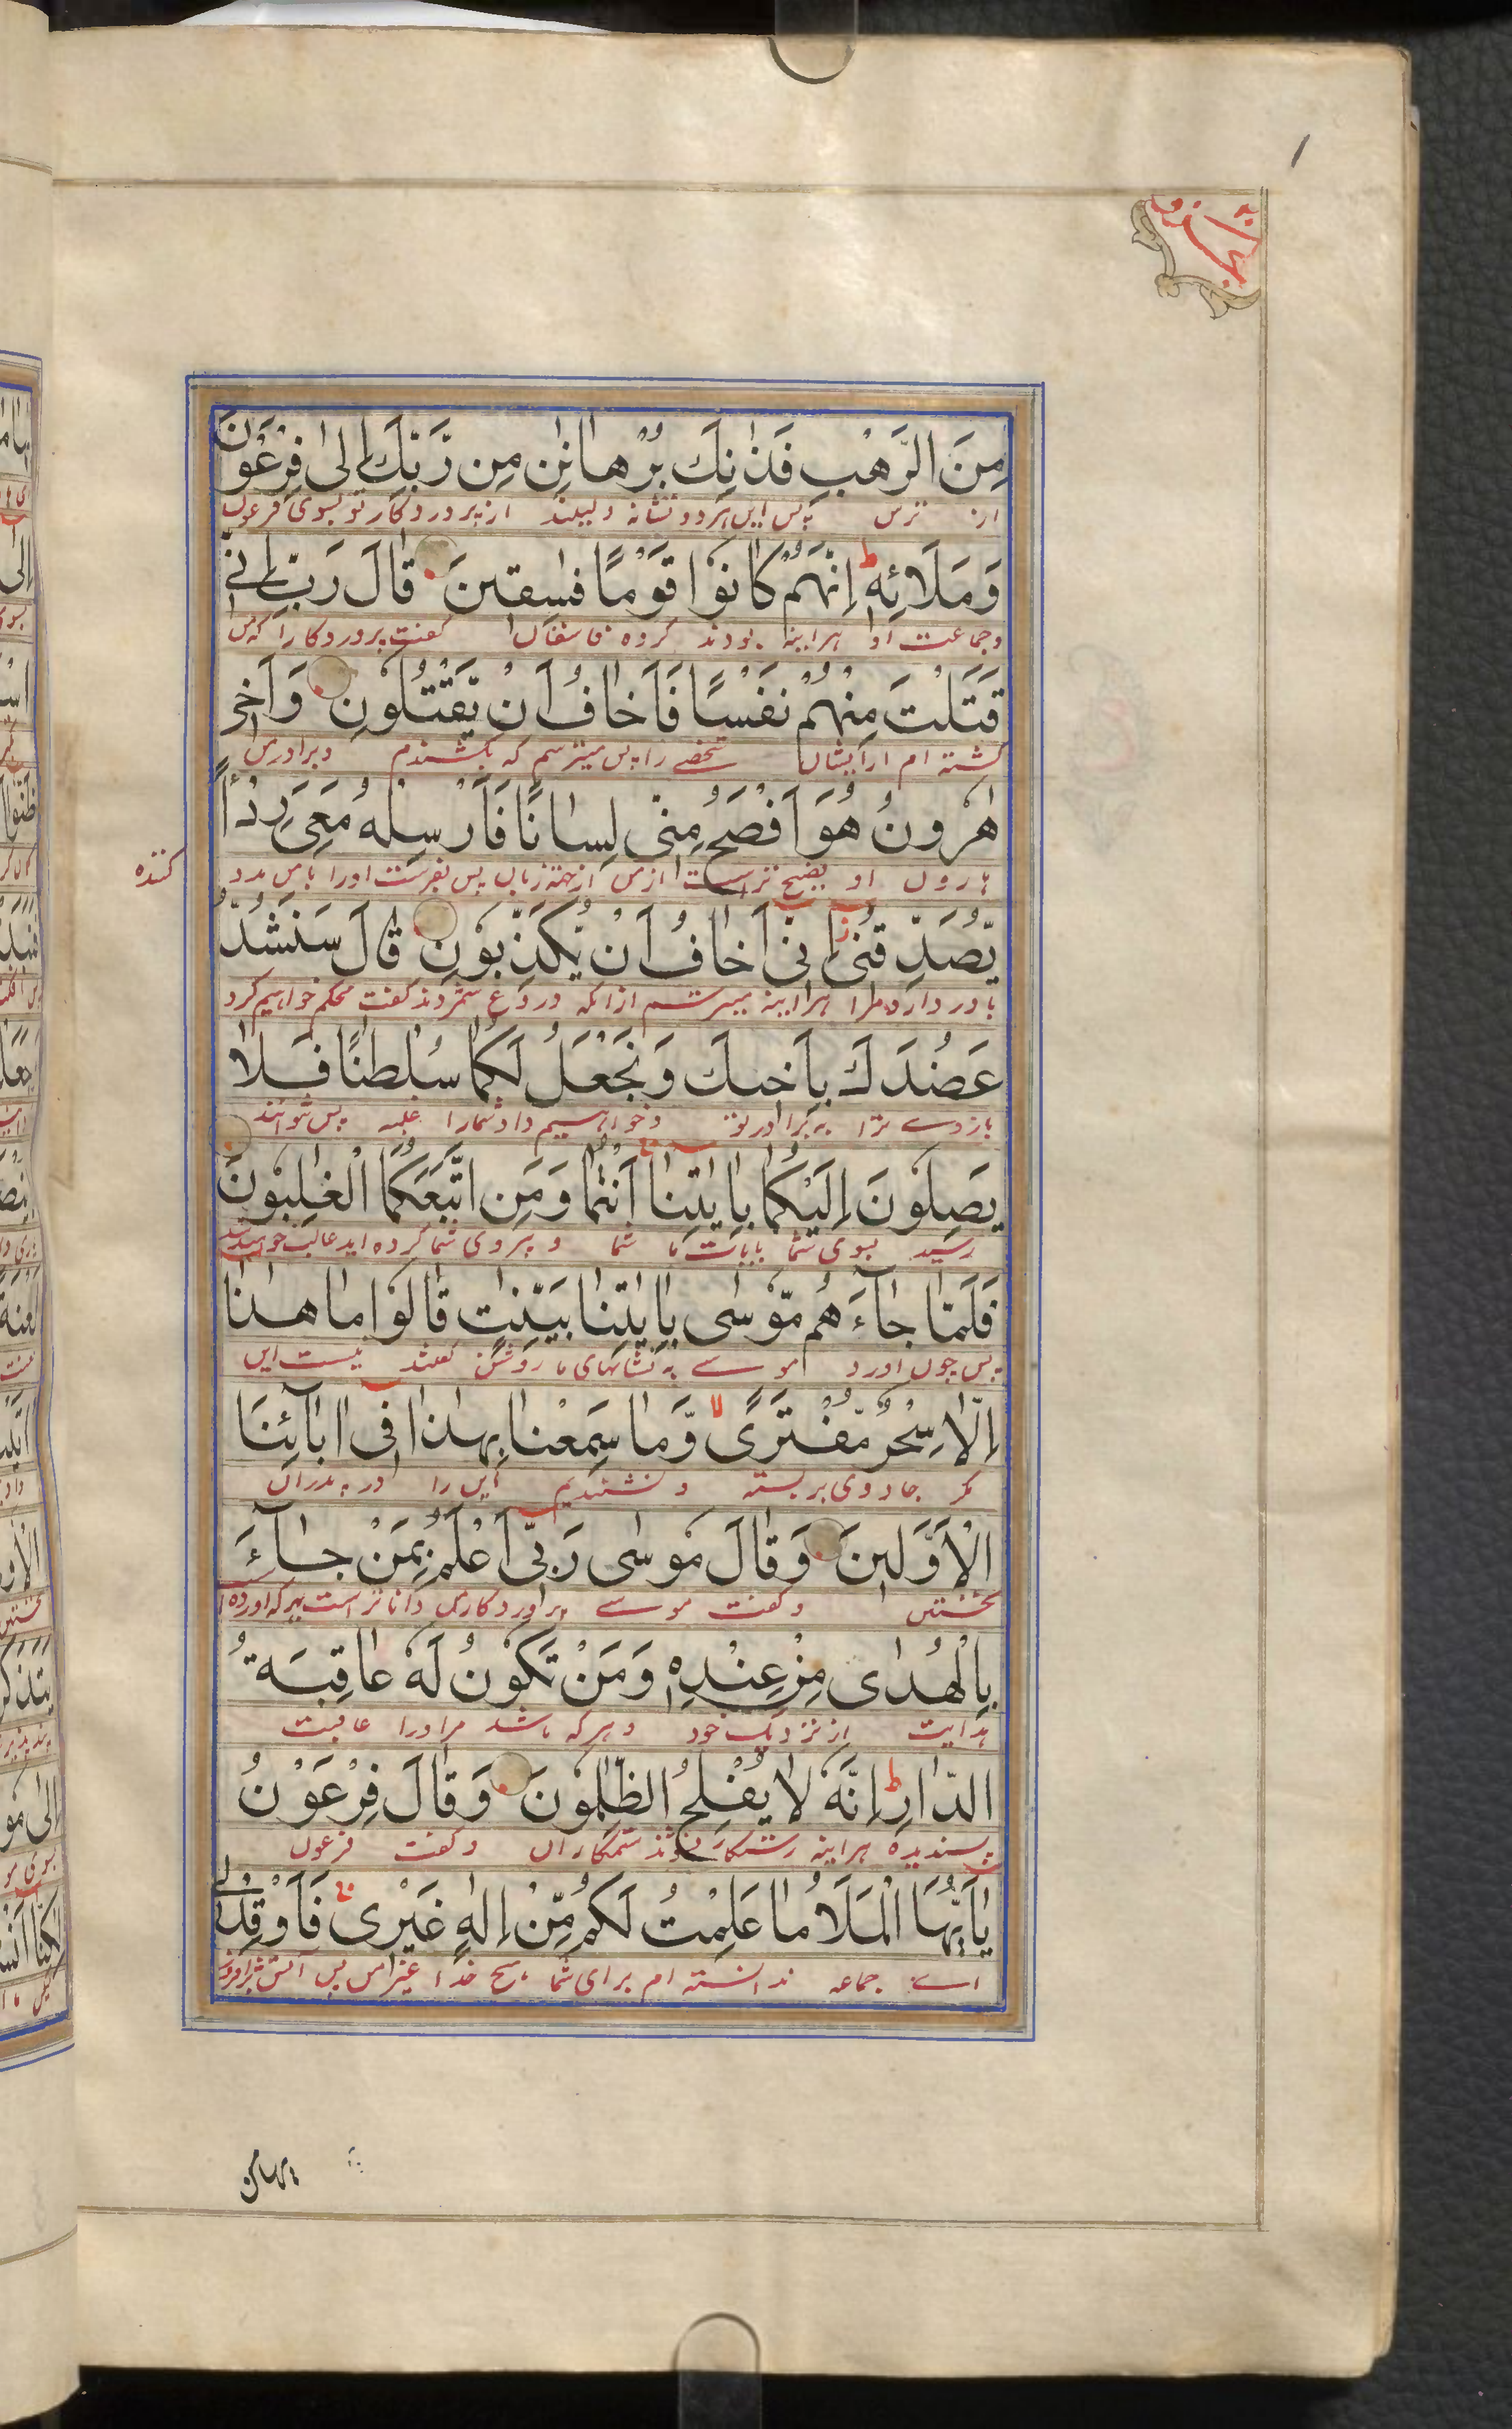 مِنَ الرَّهْبِ فَذٰنِكَ بُرْهَانٰنِ مِن رَّبِّكَ إِلٰى فِرْعَوْنَ
از ترس پس این هردو نشانه دلیلند از پروردکار تو بسوی فرعون
وَمَلَائِهٖ ط اِنَّهُمْ كَانُوْا قَوْمًا فٰسِقِينَ قَالَ رَبِّ اِنِّي
وجماعت او هراینه بودند کروه فاسقان کفت پروردکارا که من
قَتَلْتُ مِنْهُمْ نَفْسًا فَاَخَافُ اَنْ يَّقْتُلُوْنِ وَاَخِي
کشته ام ازایشان شخصے را پس میترسم که بکشندم وبرادرمن
هٰرُونُ هُوَ اَفْصَحُ مِنِّي لِسَانًا فَاَرْسِلْهُ مَعِيَ رِدْأً
هارون او فصیح تراست ازمن ازجهة زبان پس بفرست اورا بامن مدد
کننده
يُّصَدِّقُنِيْ ز اِنِّي اَخَافُ اَنْ يُّكَذِّبُوْنِ قَالَ سَنَشُدُّ
باور دارد مرا هراینه میترسم ازانکه دروغ شمردند کفت محکم خواهیم کرد
عَضُدَكَ بِاَخِيكَ وَنَجْعَلُ لَكُمَا سُلْطٰنًا فَلَا
بازوے ترا به برادرتو وخواهیم داد شمارا غلبه پس نتوانند
يَصِلُوْنَ اِلَيْكُمَا بِاٰيٰتِنَا اَنْتُمَا وَمَنِ اتَّبَعَكُمَا الْغٰلِبُوْنَ
رسید بسوی شما بایات ما شما و پیروی شما کرده اید غالب خواهید شد
فَلَمَّا جَآءَهُم مُّوْسٰى بِاٰيٰتِنَا بَيِّنٰتٍ قَالُوْا مَا هٰذَا
پس چون اورد موسے به نشانهای ما روشن کفتند نیست این
اِلَّا سِحْرٌ مُّفْتَرًى لا وَّمَا سَمِعْنَا بِهٰذَا فِي اٰبَآئِنَا
مکر جادوی بربسته و نشنیدیم این را در پدران
الْاَوَّلِينَ وَقَالَ مُوْسٰى رَبِّي اَعْلَمُ بِمَنْ جَآءَ
نخستین وکفت موسے پروردکارمن داناتراست بهرکه اورده
بِالْهُدٰى مِنْ عِنْدِهٖ وَمَنْ تَكُوْنُ لَهٗ عَاقِبَةُ
هدایت از نزدیک خود وهرکه باشد مراورا عاقبت
الدَّارِ ط اِنَّهٗ لَا يُفْلِحُ الظّٰلِمُوْنَ وَقَالَ فِرْعَوْنُ
پسندیده هراینه رستکار نشوند ستمکاران وکفت فرعون
يٰاَيُّهَا الْمَلَاُ مَا عَلِمْتُ لَكُم مِّنْ اِلٰهٍ غَيْرِي ج فَاَوْقِدْلِي
اے جماعه ندانسته ام برای شما هیچ خدا غیرمن پس اتش برافروز